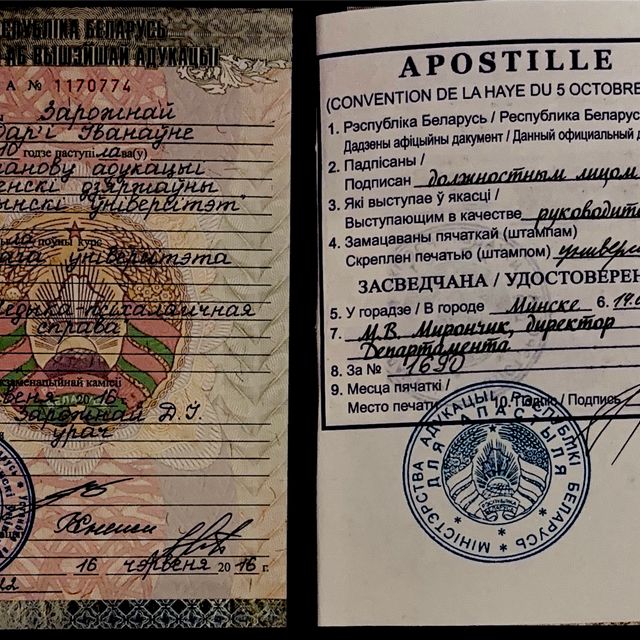 РЭСПУБЛІКА БЕЛАРУСЬ
АБ ВЫШЭЙШАЙ АДУКАЦЫІ
А № 1170774
Зарожнай
Іванаўне
годзе паступіла ва(у)
адукацыі
дзяржаўны
ўніверсітэт"
поўны курс
ўніверсітэта
справа
экзаменацыйнай камісіі
Зарожнай Д.І.
урач
16 чэрвеня 2016 г.
APOSTILLE
(CONVENTION DE LA HAYE DU 5 OCTOBRE
1. Рэспубліка Беларусь / Республика Беларусь
Дадзены афіцыйны дакумент / Данный официальный д
2. Падпісаны /
Подписан должностным лицом
3. Які выступае ў якасці /
Выступающим в качестве руководит
4. Замацаваны пячаткай (штампам)
Скреплен печатью (штампом) универс
ЗАСВЕДЧАНА / УДОСТОВЕРЕН
5. У горадзе / В городе Минске 6.
7. М.В. Мирончик, директор
Департамента
8. За № 1690
9. Месца пячаткі /
Место печати 10. Подпіс / Подпись
МІНІСТЭРСТВА АДУКАЦЫІ РЭСПУБЛІКІ БЕЛАРУСЬ
ДЛЯ АПАСТЫЛЯ